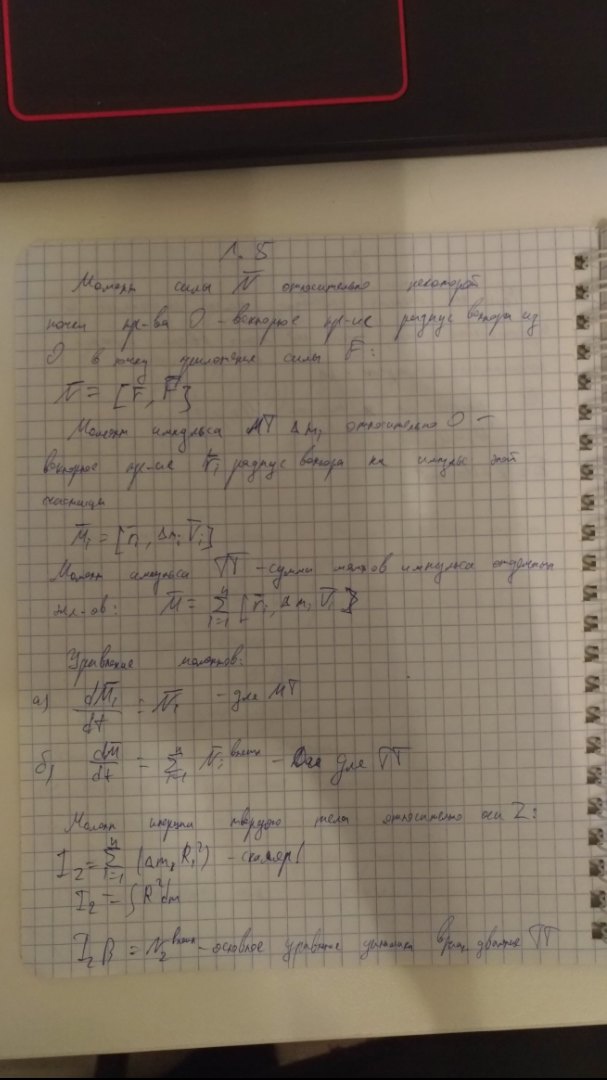 Л. 5
Момент силы N̅ относительно некоторой
точки пр-ва O - векторное пр-ие радиус вектора из
O в точку приложения силы F̅:
N̅ = [r̅, F̅]
Момент импульса МТ Δmᵢ относительно O -
векторное пр-ие r̅ᵢ радиус вектора на импульс этой
частицы
M̅ᵢ = [r̅ᵢ, Δmᵢ V̅ᵢ]
Момент импульса ТТ - сумма импульса отдельных
эл-ов: M̅ = Σⁿᵢ₌₁ [r̅ᵢ, Δmᵢ V̅ᵢ]
Уравнение моментов:
а) dM̅ᵢ/dt = N̅ᵢ - для МТ
б) dM̅/dt = Σⁿᵢ₌₁ N̅ᵢ внеш - для ТТ
Момент инерции твердого тела относительно оси Z:
I_z = Σⁿᵢ₌₁ (Δmᵢ Rᵢ²) - скаляр!
I_z = ∫R²dm
I_z β = N_z внеш - основное уравнение динамики вращ. движения ТТ